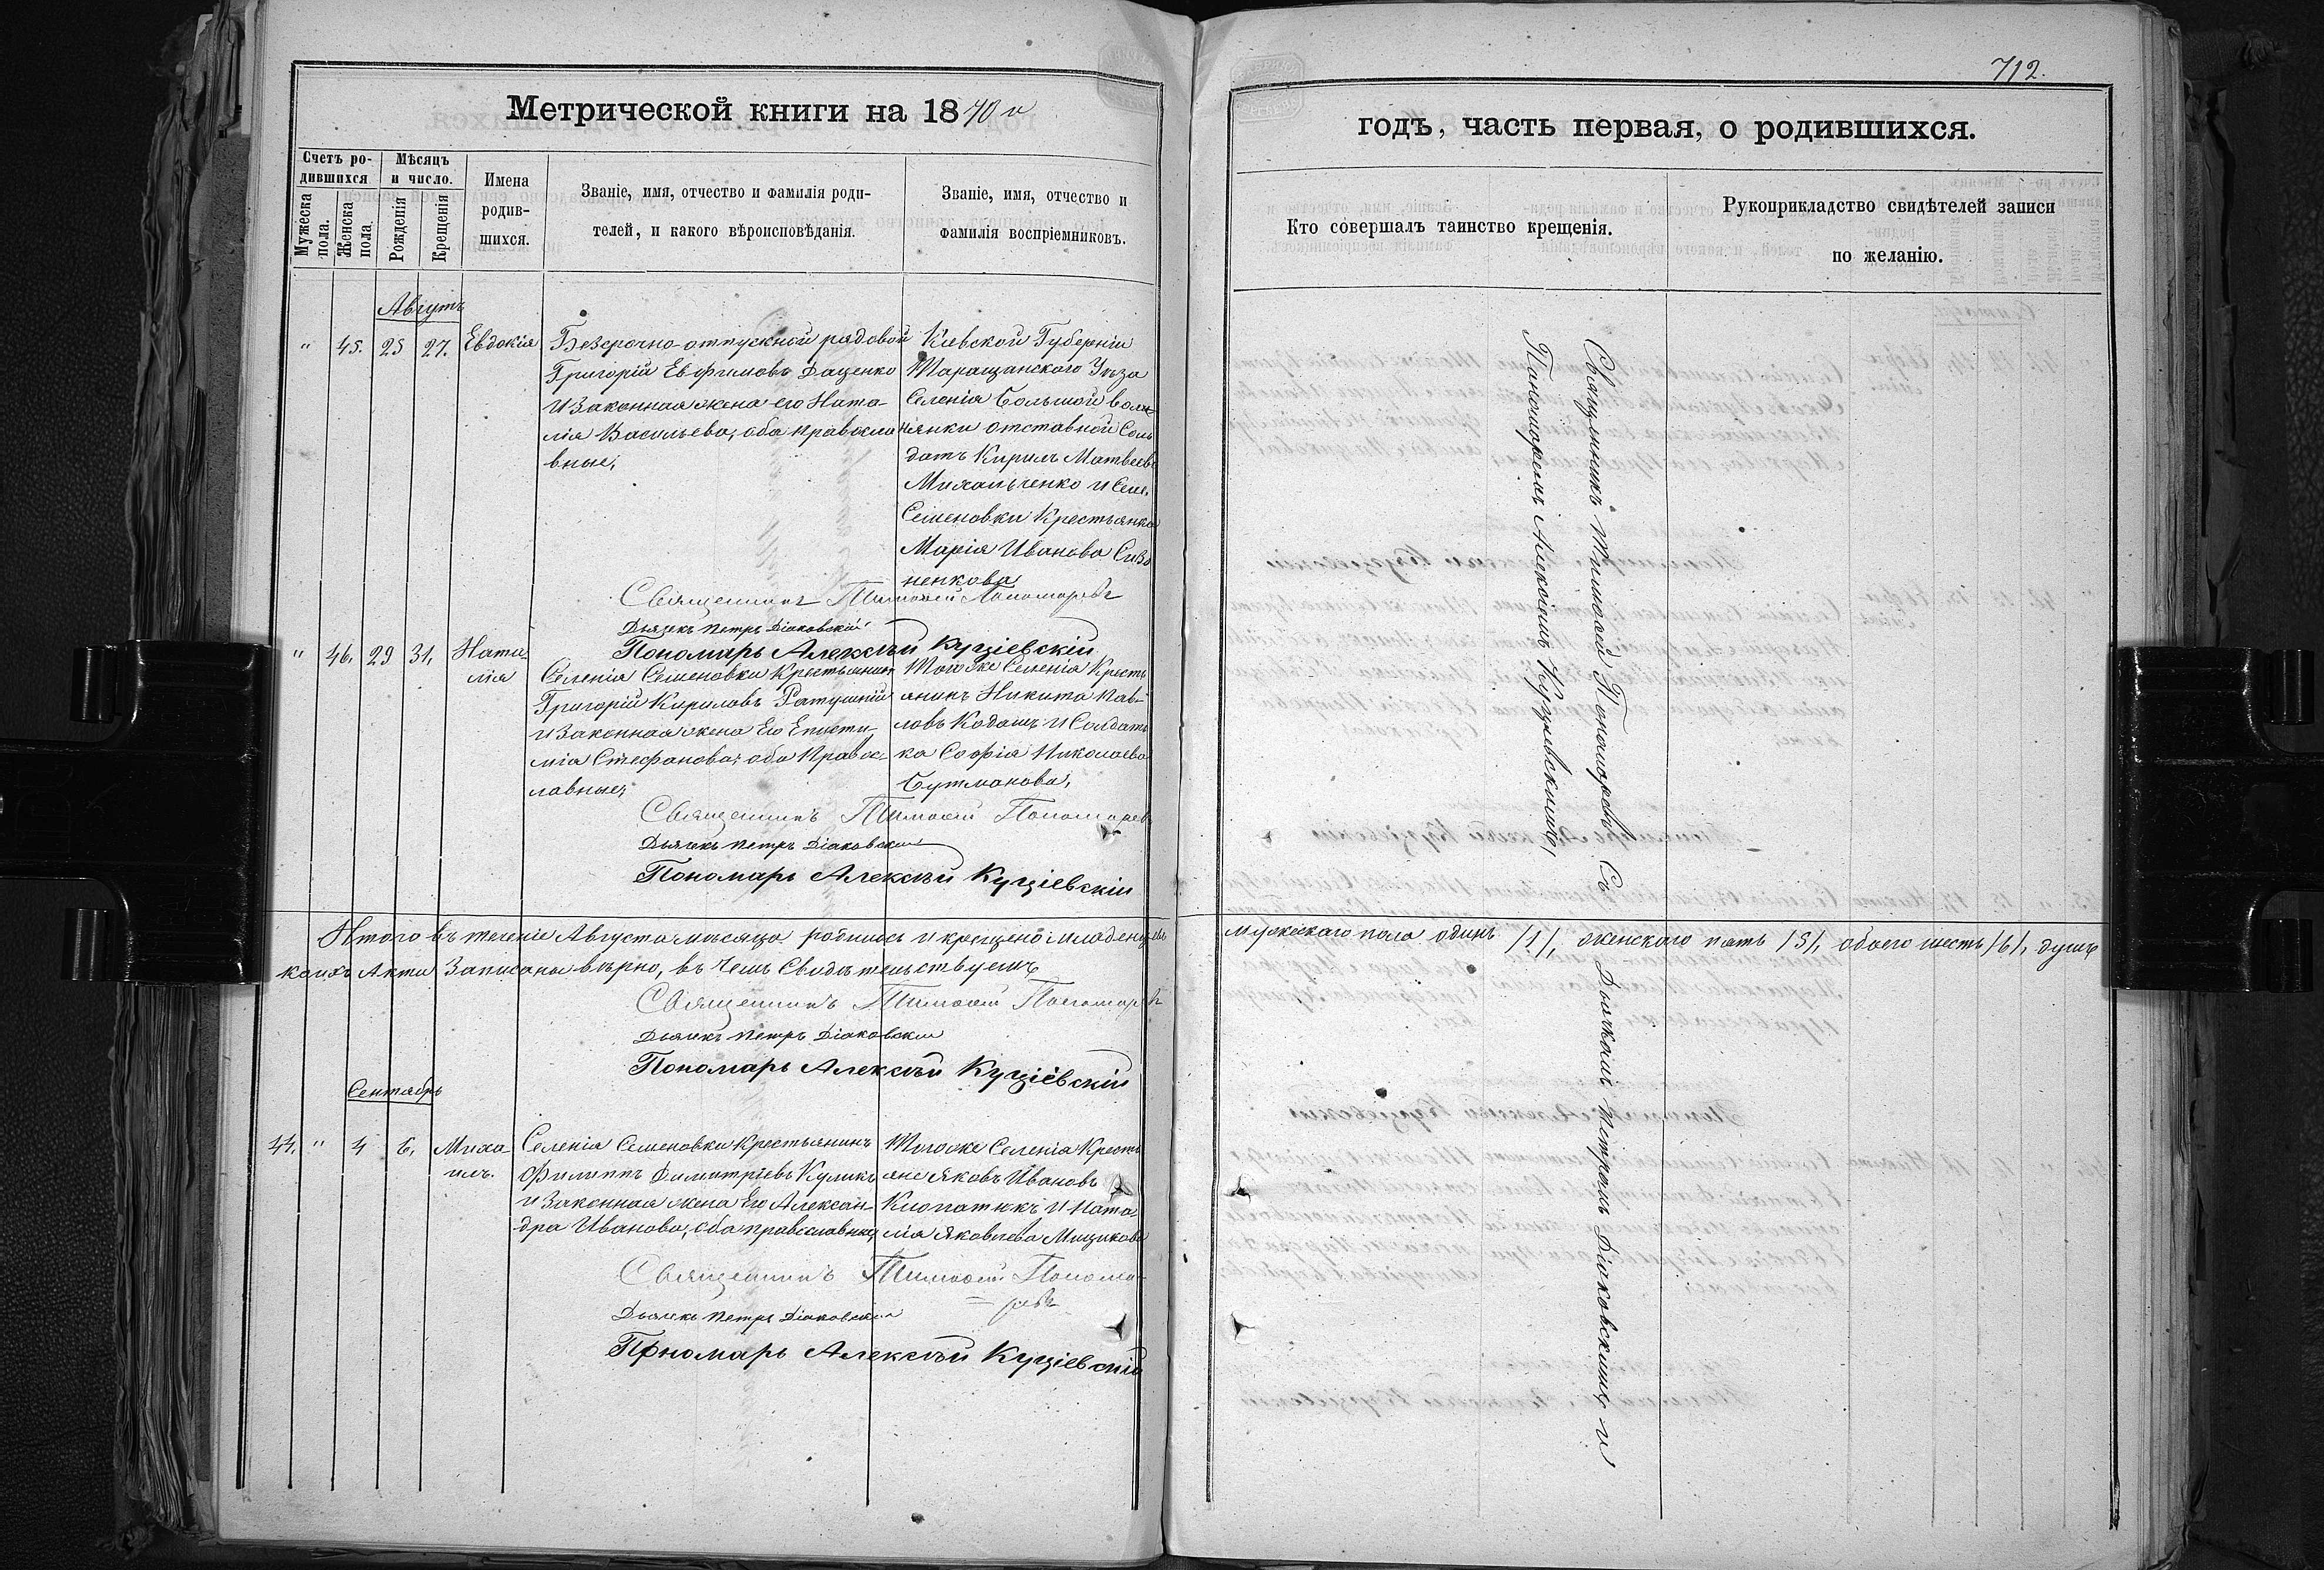 712.
Метрической книги на 1870 г
годъ, часть первая, о родившихся.
Счетъ ро-
дившихся
Мужеска
пола.
Женска
пола
Мѣсяцъ
и число.
Рожденія
Крещенія
Имена
родив-
шихся.
Званіе, имя, отчество и фамилія роди-
телей, и какого вѣроисповѣданія.
Званіе, имя, отчество и
фамилія воспріемниковъ.
Кто совершалъ таинство крещенія.
Рукоприкладство свидѣтелей записи
по желанію.
Августъ
" 45. 25 27. Евдокія
Безсрочно-отпускной рядовой
Григорій Евфимовъ Даценко
и Законная жена его Ната-
лія Васильева, оба правосла
вные,
Кіевской Губерніи
Таращанского Уѣзда
Селенія Большой воля-
нянки отставной Сол
датъ Кирилъ Матвеевъ
Михальченко и Селе.
Семеновки Крестьянка
Марія Иванова Сизо
ненкова
Священникъ Тимофей Пономаревъ
Дьячекъ Петръ Діаковскій
Пономарь Алексѣй Куціевскій
" 46. 29 31, Ната-
лія
Селенія Семеновки Крестьянинъ
Григорій Кириловъ Ратушній
и Законная жена Его Еписти-
мія Стефанова, оба Правос-
лавные,
Того же Селенія Кресть
янинъ Никита Пав-
ловъ Кадашъ и Солдат
ка Софія Николаева
Бутманова,
Священникъ Тимофей Пономарев
Дьячекъ Петръ Діаковскій
Пономарь Алексѣй Куціевскій
Итого въ теченіе Августа мѣсяца родилось и крещено младенцевъ
мужескаго пола одинъ /1/, женскаго пять /5/, обоего шесть /6/, душъ
коихъ Акты Записаны вѣрно, въ чемъ Свидѣтельствуемъ
Священникъ Тимофей Пономаревъ
Дьячекъ Петръ Діаковскій
Пономарь Алексѣй Куціевскій
Сентябрь
44. " 4 6, Миха-
илъ.
Селенія Семеновки Крестьянинъ
Филиппъ Димитріевъ Куликъ
и Законная жена Его Алексан-
дра Иванова, оба православные,
Того же Селенія Кресть
яне Яковъ Ивановъ
и Ната-
лія Яковлева
Священникъ Тимофей Понома-
ревъ
Дьячекъ Петръ Діаковскій
Пономарь Алексѣй Куціевскій
Священникъ Тимофей Пономаревъ Съ Дьячкомъ Петромъ Діаковскимъ и
Пономаремъ Алексѣемъ Куціевскимъ,